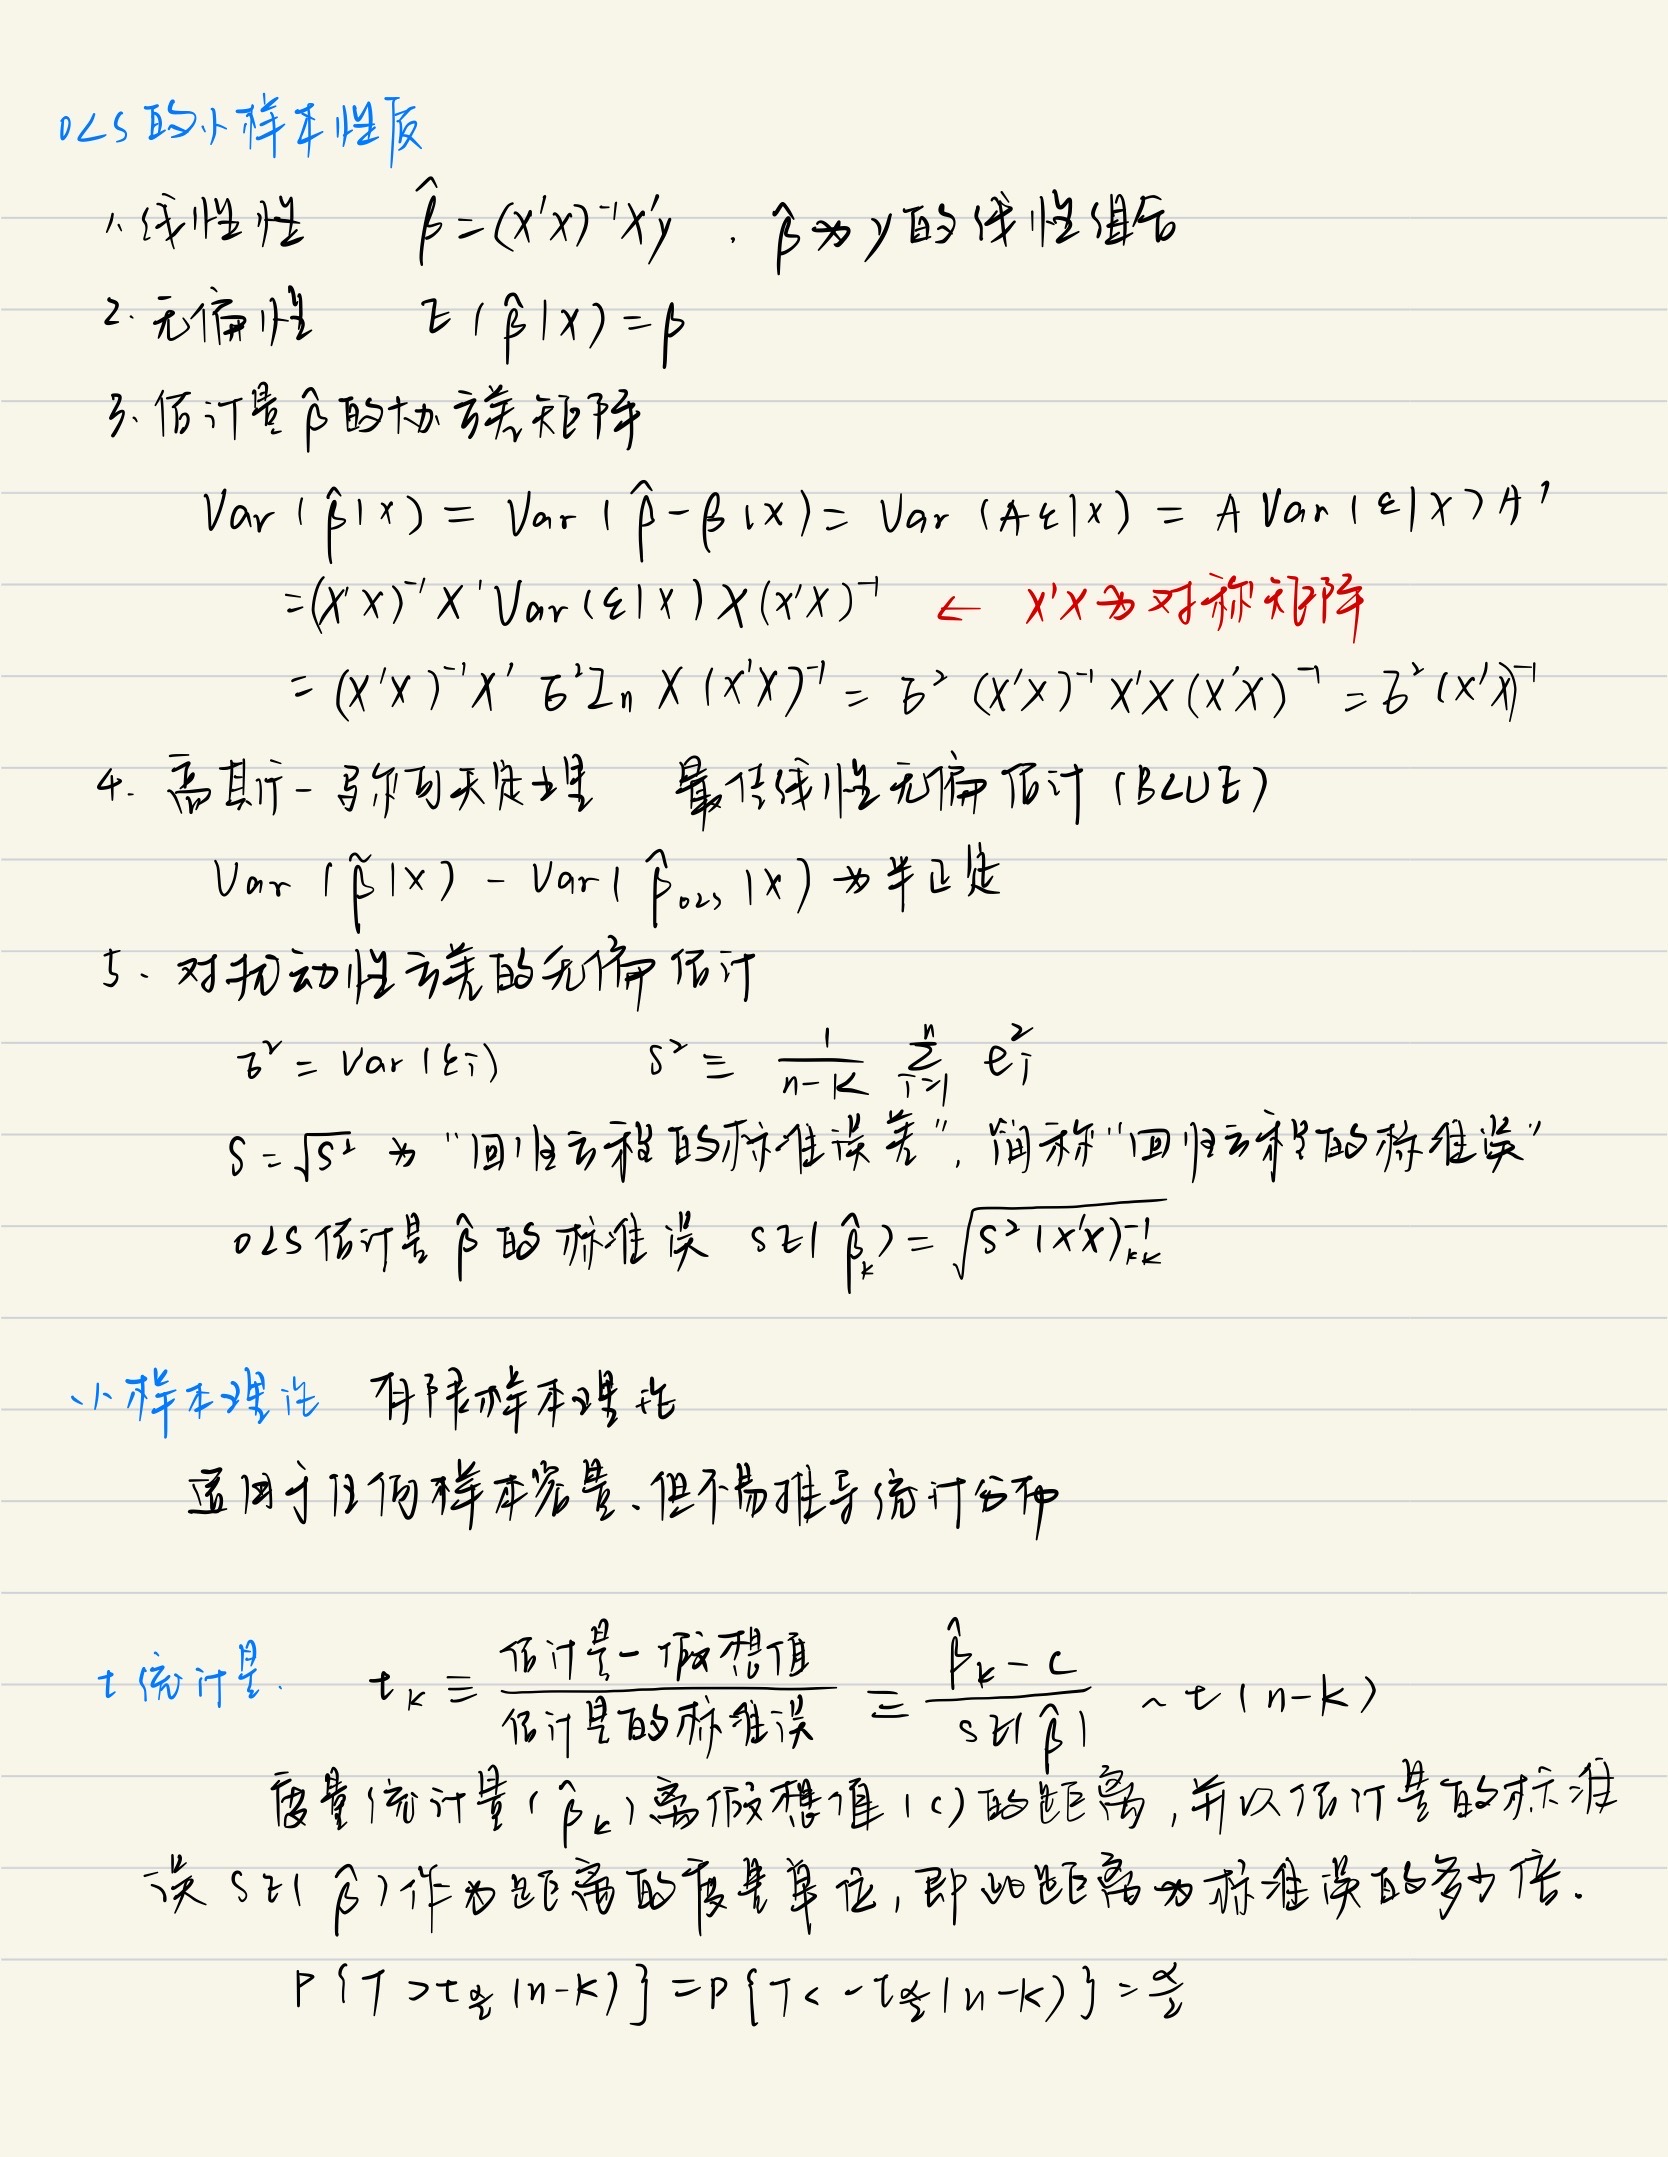 OLS的小样本性质
1. 线性性 β̂ = (X'X)⁻¹X'y . β̂为y的线性组合
2. 无偏性 E(β̂|X) = β
3. 估计量β̂的协方差矩阵
Var(β̂|X) = Var(β̂-β|X) = Var(Aε|X) = A Var(ε|X)A'
= (X'X)⁻¹X'Var(ε|X)X(X'X)⁻¹ ← X'X为对称矩阵
= (X'X)⁻¹X'σ²IₙX(X'X)⁻¹ = σ²(X'X)⁻¹X'X(X'X)⁻¹ = σ²(X'X)⁻¹
4. 高斯-马尔可夫定理 最佳线性无偏估计(BLUE)
Var(β̃|X) - Var(β̂_OLS|X)为半正定
5. 对扰动性方差的无偏估计
σ² = Var(εi) S² ≡ 1/(n-K) Σ_{i=1}^{n} e_i²
S = √S² 为"回归方程的标准误差", 简称"回归方程的标准误"
OLS估计量β̂的标准误 SE(β̂_k) = √(S²(X'X)⁻¹_kk)
小样本理论 有限样本理论
适用于任何样本容量、但不易推导统计分布
t统计量. t_k ≡ (估计量-假想值)/(估计量的标准误) ≡ (β̂_k - c)/SE(β̂) ~ t(n-K)
度量统计量(β̂_k)离假想值(c)的距离,并以估计量的标准
误SE(β̂)作为距离的度量单位,即此距离为标准误的多少倍.
P{T > t_{α/2}(n-K)} = P{T < -t_{α/2}(n-K)} = α/2